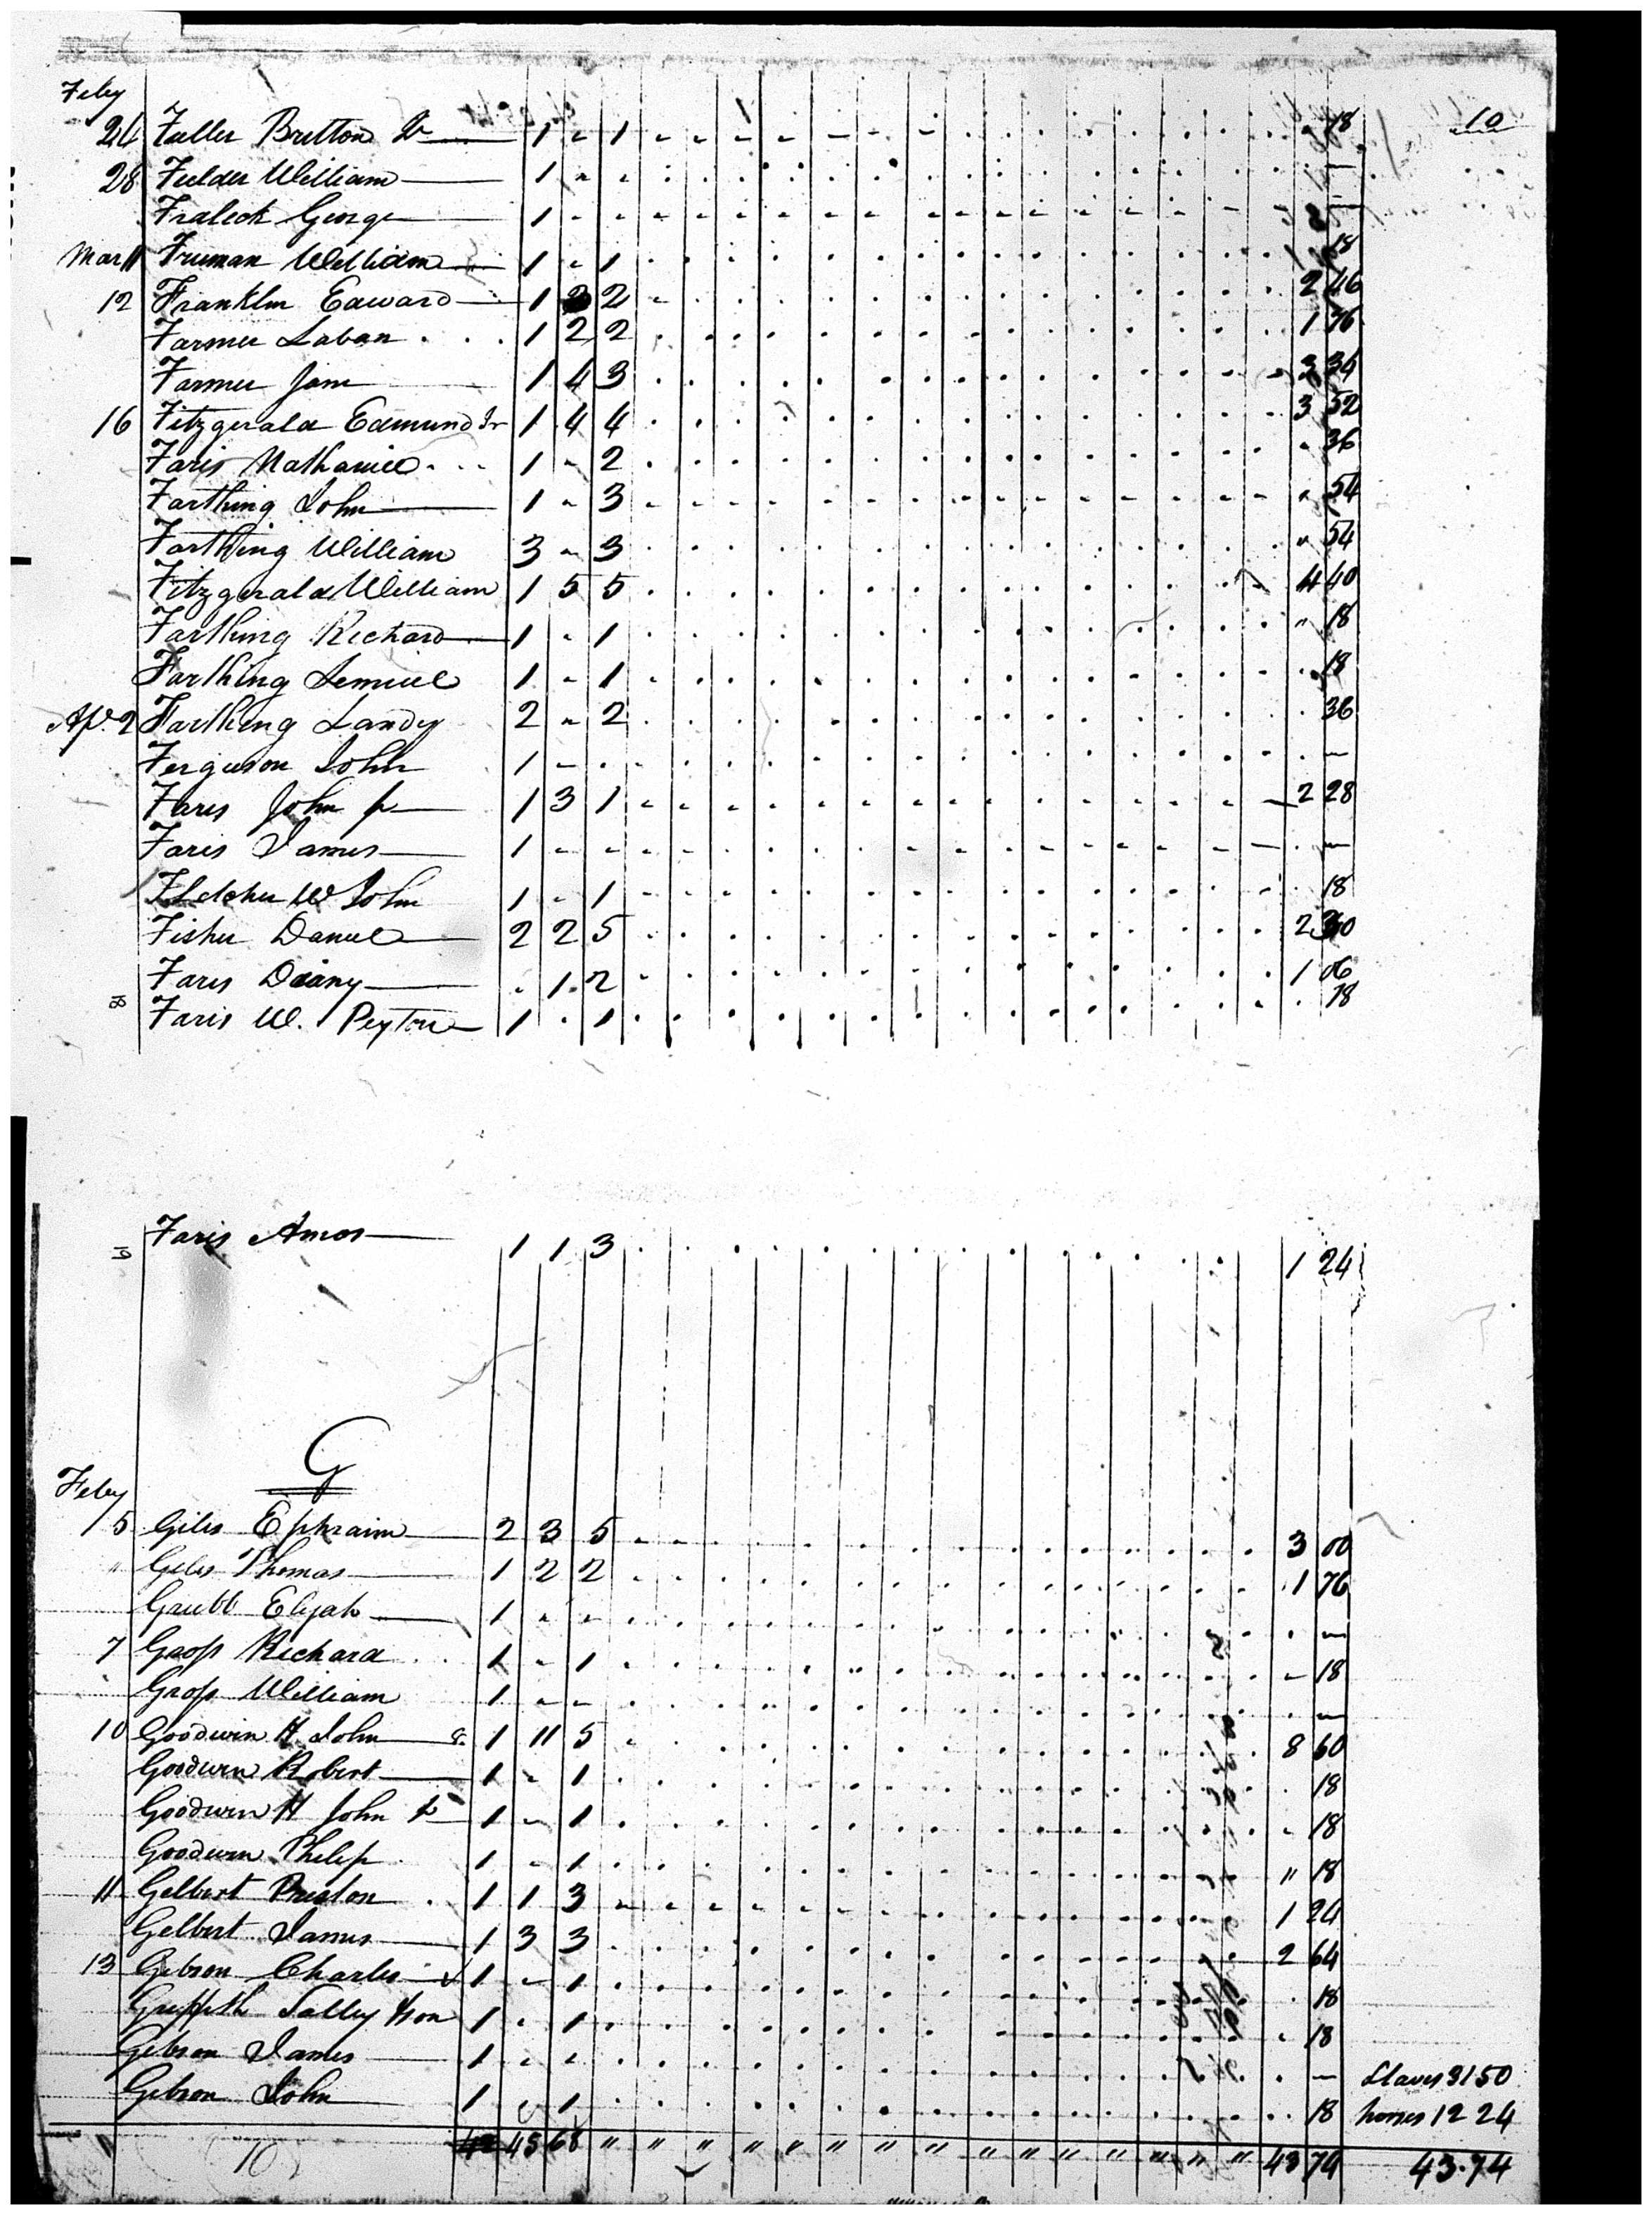 Feby
10
24 Fuller Britton Jr 1 - 1 - - - - - - 18
28 Fulder William 1 - - —
Fraleck George 1 - - - - - - - —
Mar 11 Truman William 1 - 1 18
12 Franklin Edward 1 3 2 2 46
Farmer Laban 1 2 2 1 76
Farmer Jam 1 4 3 3 34
16 Fitzgerald Edmund Jr 1 4 4 3 52
Faris Nathaniel 1 - 2 36
Farthing John 1 - 3 " 54
Farthing William 3 - 3 " 54
Fitzgerald William 1 5 5 4 40
Farthing Richard 1 - 1 " 18
Farthing Lemuel 1 - 1 18
Ap. 2 Farthing Landy 2 - 2 36
Ferguson John 1 - —
Faris John 1 3 1 2 28
Faris James 1 - - —
Fletcher W John 1 - 1 18
Fisher Daniel 2 2 5 2 30
Faris Diany 1 2 1 06
18 Faris W. Peyton 1 1 18
19 Faris Amos 1 1 3 1 24
G
Feby
5 Giles Ephraim 2 3 5 3 00
" Giles Thomas 1 2 2 1 76
Grubb Elijah 1 - - —
7 Gross Richard 1 - 1 - 18
Gross William 1 - - —
10 Goodwin H John 1 11 5 8 60
Goodwin Robert 1 - 1 18
Goodwin H John 1 - 1 - 18
Goodwin Philip 1 - 1 " 18
11 Gelbert Preston 1 1 3 1 24
Gelbert James 1 3 3 2 64
13 Gibson Charles 1 - 1 18
Griffith Salley son 1 - 1 18
Gibson James 1 - - — Slaves 31 50
Gibson John 1 - 1 18 horses 12 24
10 42 45 68 " " " " " " " " " " " " " " " 43 74 43.74